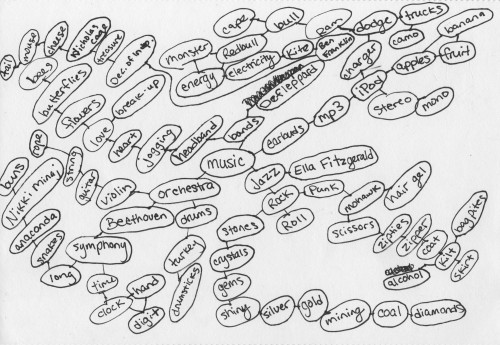 tail
mouse
cheese
Nicholas cage
bees
treasure
butterflies
Dec. of Indep.
flowers
break-up
love
heart
jogging
headband
bands
Def Leppard
cape
bull
Redbull
monster
energy
electricity
Kite
Ben Franklin
Ram
dodge
trucks
camo
banana
fruit
apples
charger
iPod
stereo
mono
mp3
earbuds
music
orchestra
violin
guitar
string
rope
Beethoven
symphony
time
clock
hand
digit
drums
turkey
drumsticks
buns
Nikki Minaj
anaconda
snakes
long
jazz
Ella Fitzgerald
Rock
Roll
Punk
mohawk
hair gel
scissors
stones
crystals
gems
shiny
silver
gold
mining
coal
diamonds
zipties
zipper
coat
alcohol
kilt
skirt
bagpipes